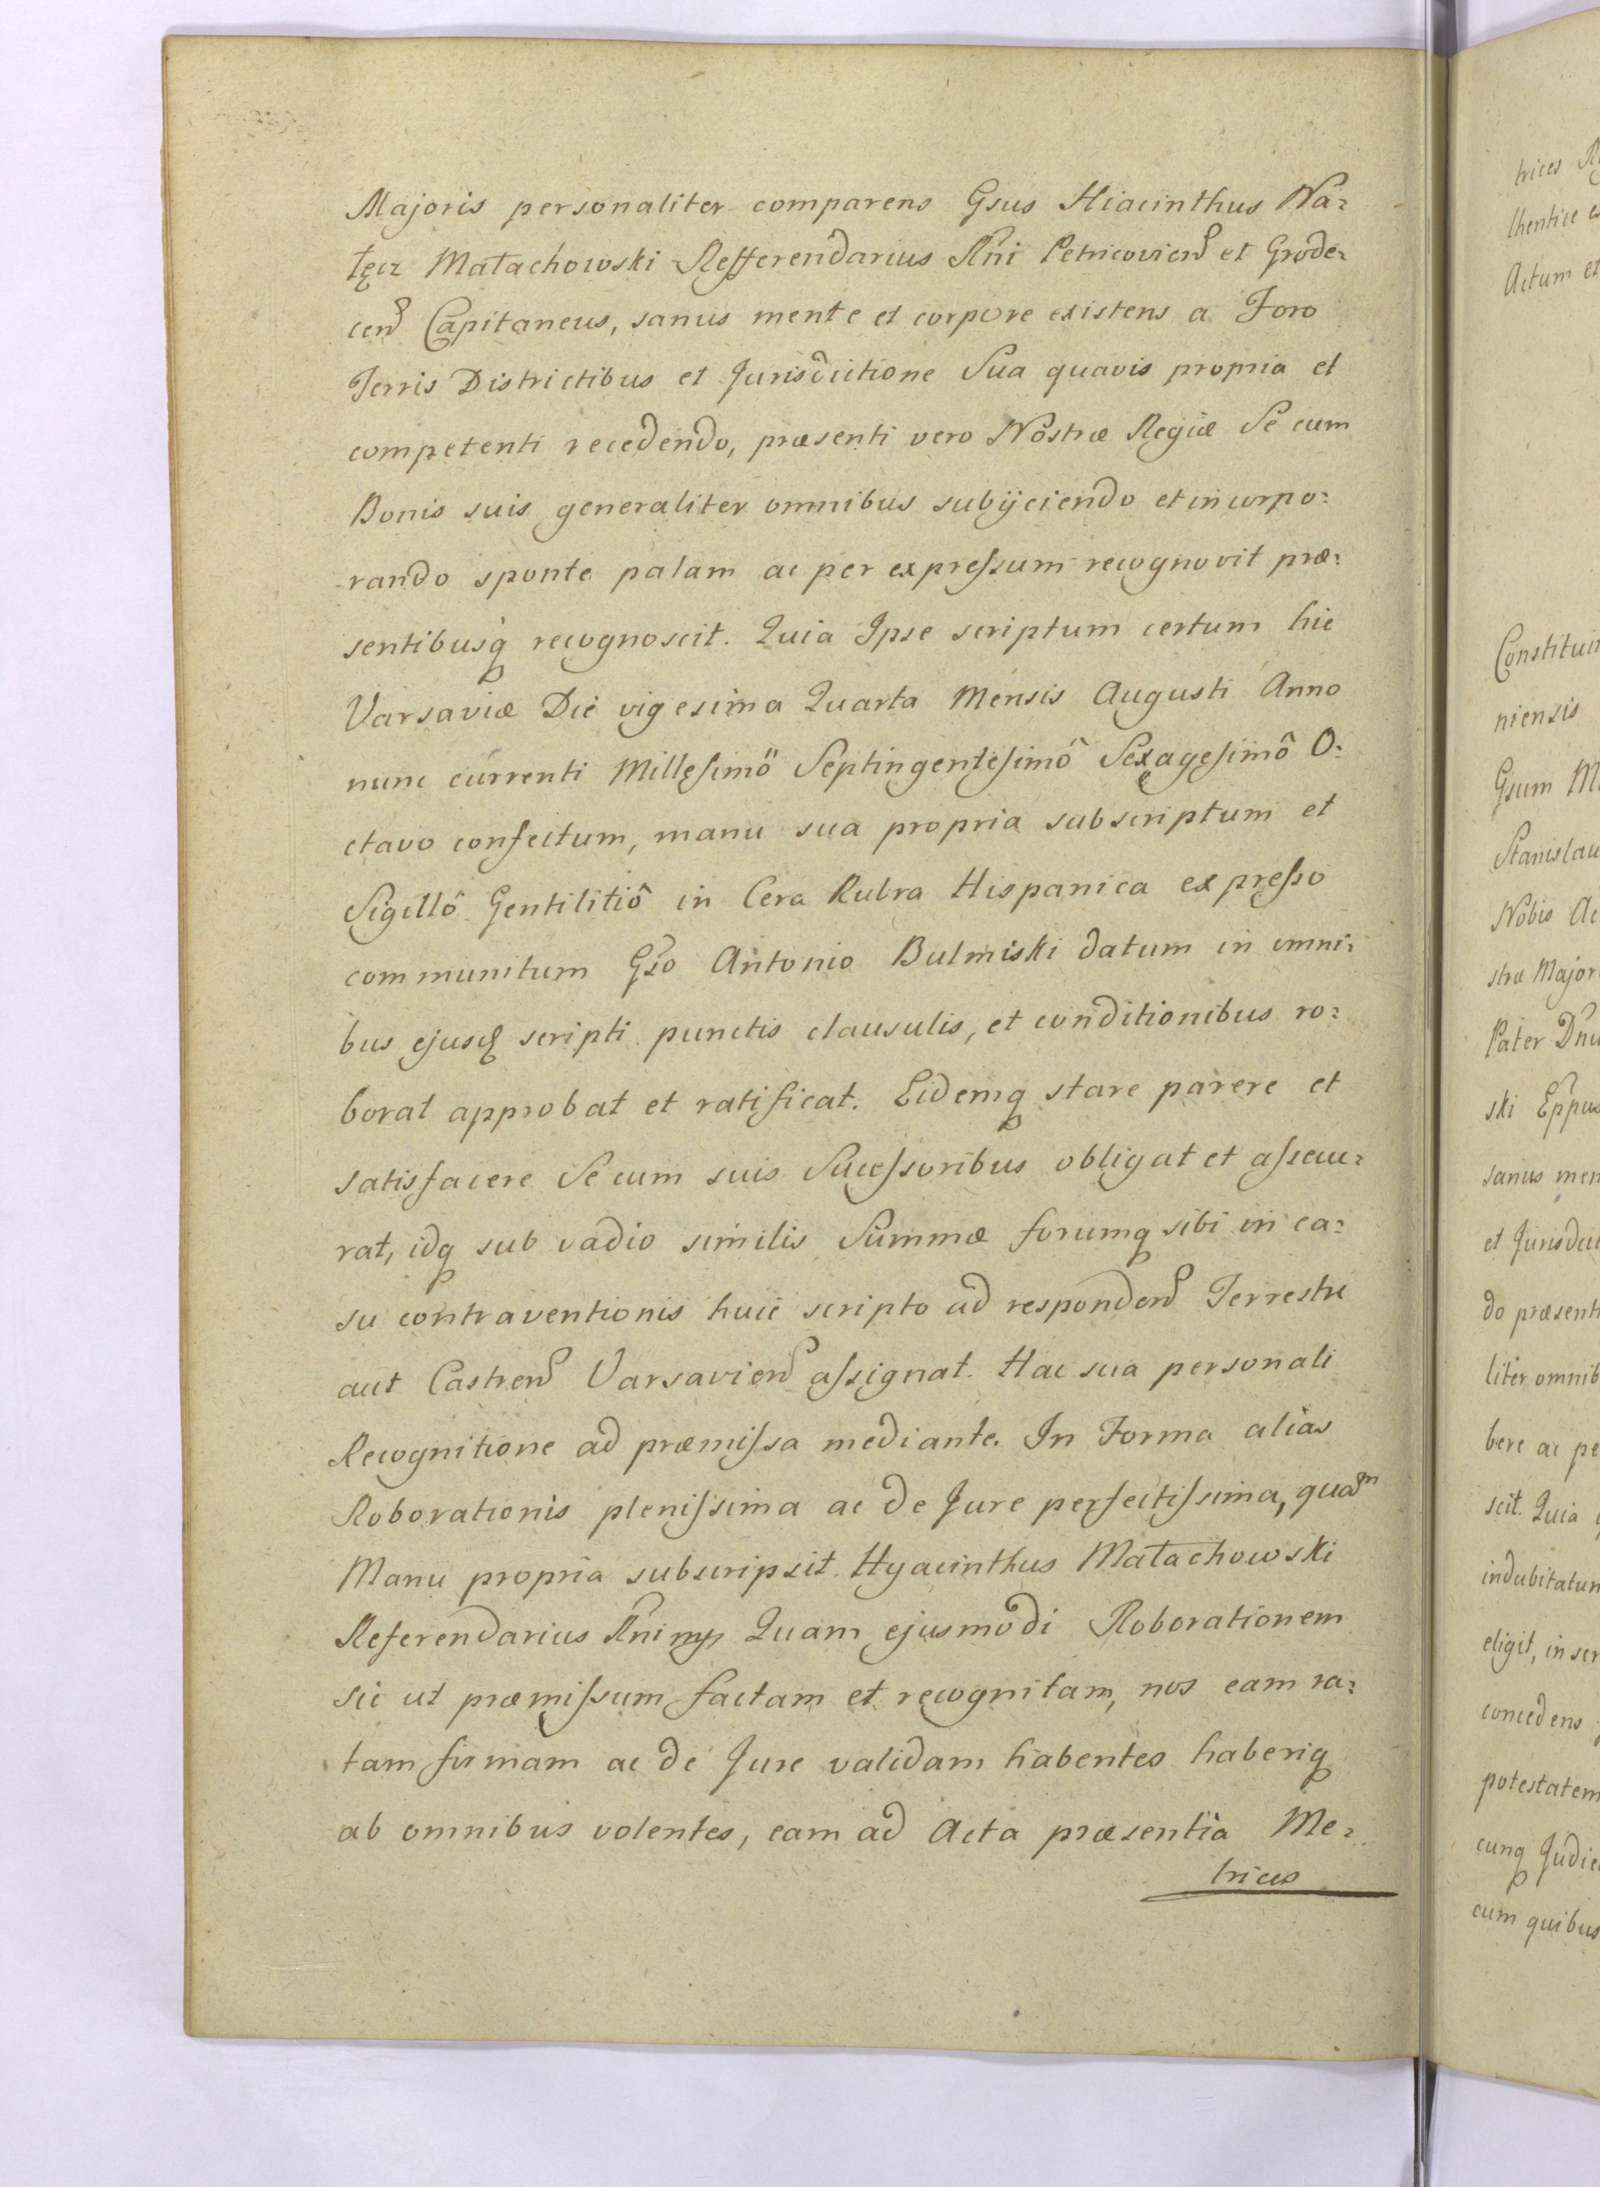 Majoris personaliter comparens Gsus Hiacinthus Na=
łęcz Małachowski Refferendarius Rñi Petricovien̄ et Grode=
cen̄ Capitaneus, sanus mente et corpore existens a Foro
Terris Districtibus et Jurisdictione Sua quavis propria et
competenti recedendo, præsenti vero Nostræ Regiæ Se cum
Bonis suis generaliter omnibus subijciendo et incorpo=
rando sponte palam ac per expreſsum recognovit præ=
sentibusq̀ recognoscit. Quia Ipse scriptum certum hic
Varsaviæ Die vigesima Quarta Mensis Augusti Anno
nunc currenti Milleſimô Septingenteſimô Sexageſimô O=
ctavo confectum, manu sua propria subscriptum et
Sigillô Gentilitiô in Cera Rubra Hispanica expreſso
communitum Gso Antonio Bulmiski datum in omni=
bus ejusq scripti punctis clausulis, et conditionibus ro=
borat approbat et ratificat. Eidemq stare parere et
satisfacere Se cum suis Succeſsoribus obligat et aſsecu=
rat, idq sub vadio similis Summæ forumq sibi in ca=
su contraventionis huic scripto ad responden̄ Terrestre
aut Castren̄ Varsavien̄ aſsignat. Hac sua personali
Recognitione ad præmiſsa mediante. In Forma alias
Roborationis pleniſsima ac de Jure perfectiſsima, quam
Manu propria subscripsit. Hyacinthus Małachowski
Referendarius Rñi mp Quam ejusmodi Roborationem
sic ut præmiſsum factam et recognitam, nos eam ra=
tam firmam ac de Jure validam habentes haberiq
ab omnibus volentes, eam ad Acta præsentia Me=
trices
trices
thentice
Actum et
niensis
Gsum
Nobis
Pater
ski Eppus
sanus
et
do
liter
bere ac
scit. Quia
eligit, in
concedens
potestatem
cunq
cum quibus